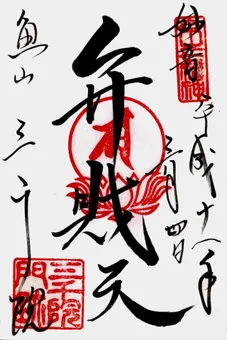 妙音
平成十八年
三月四日
弁戝天
魚山 三千院
三千院
門跡